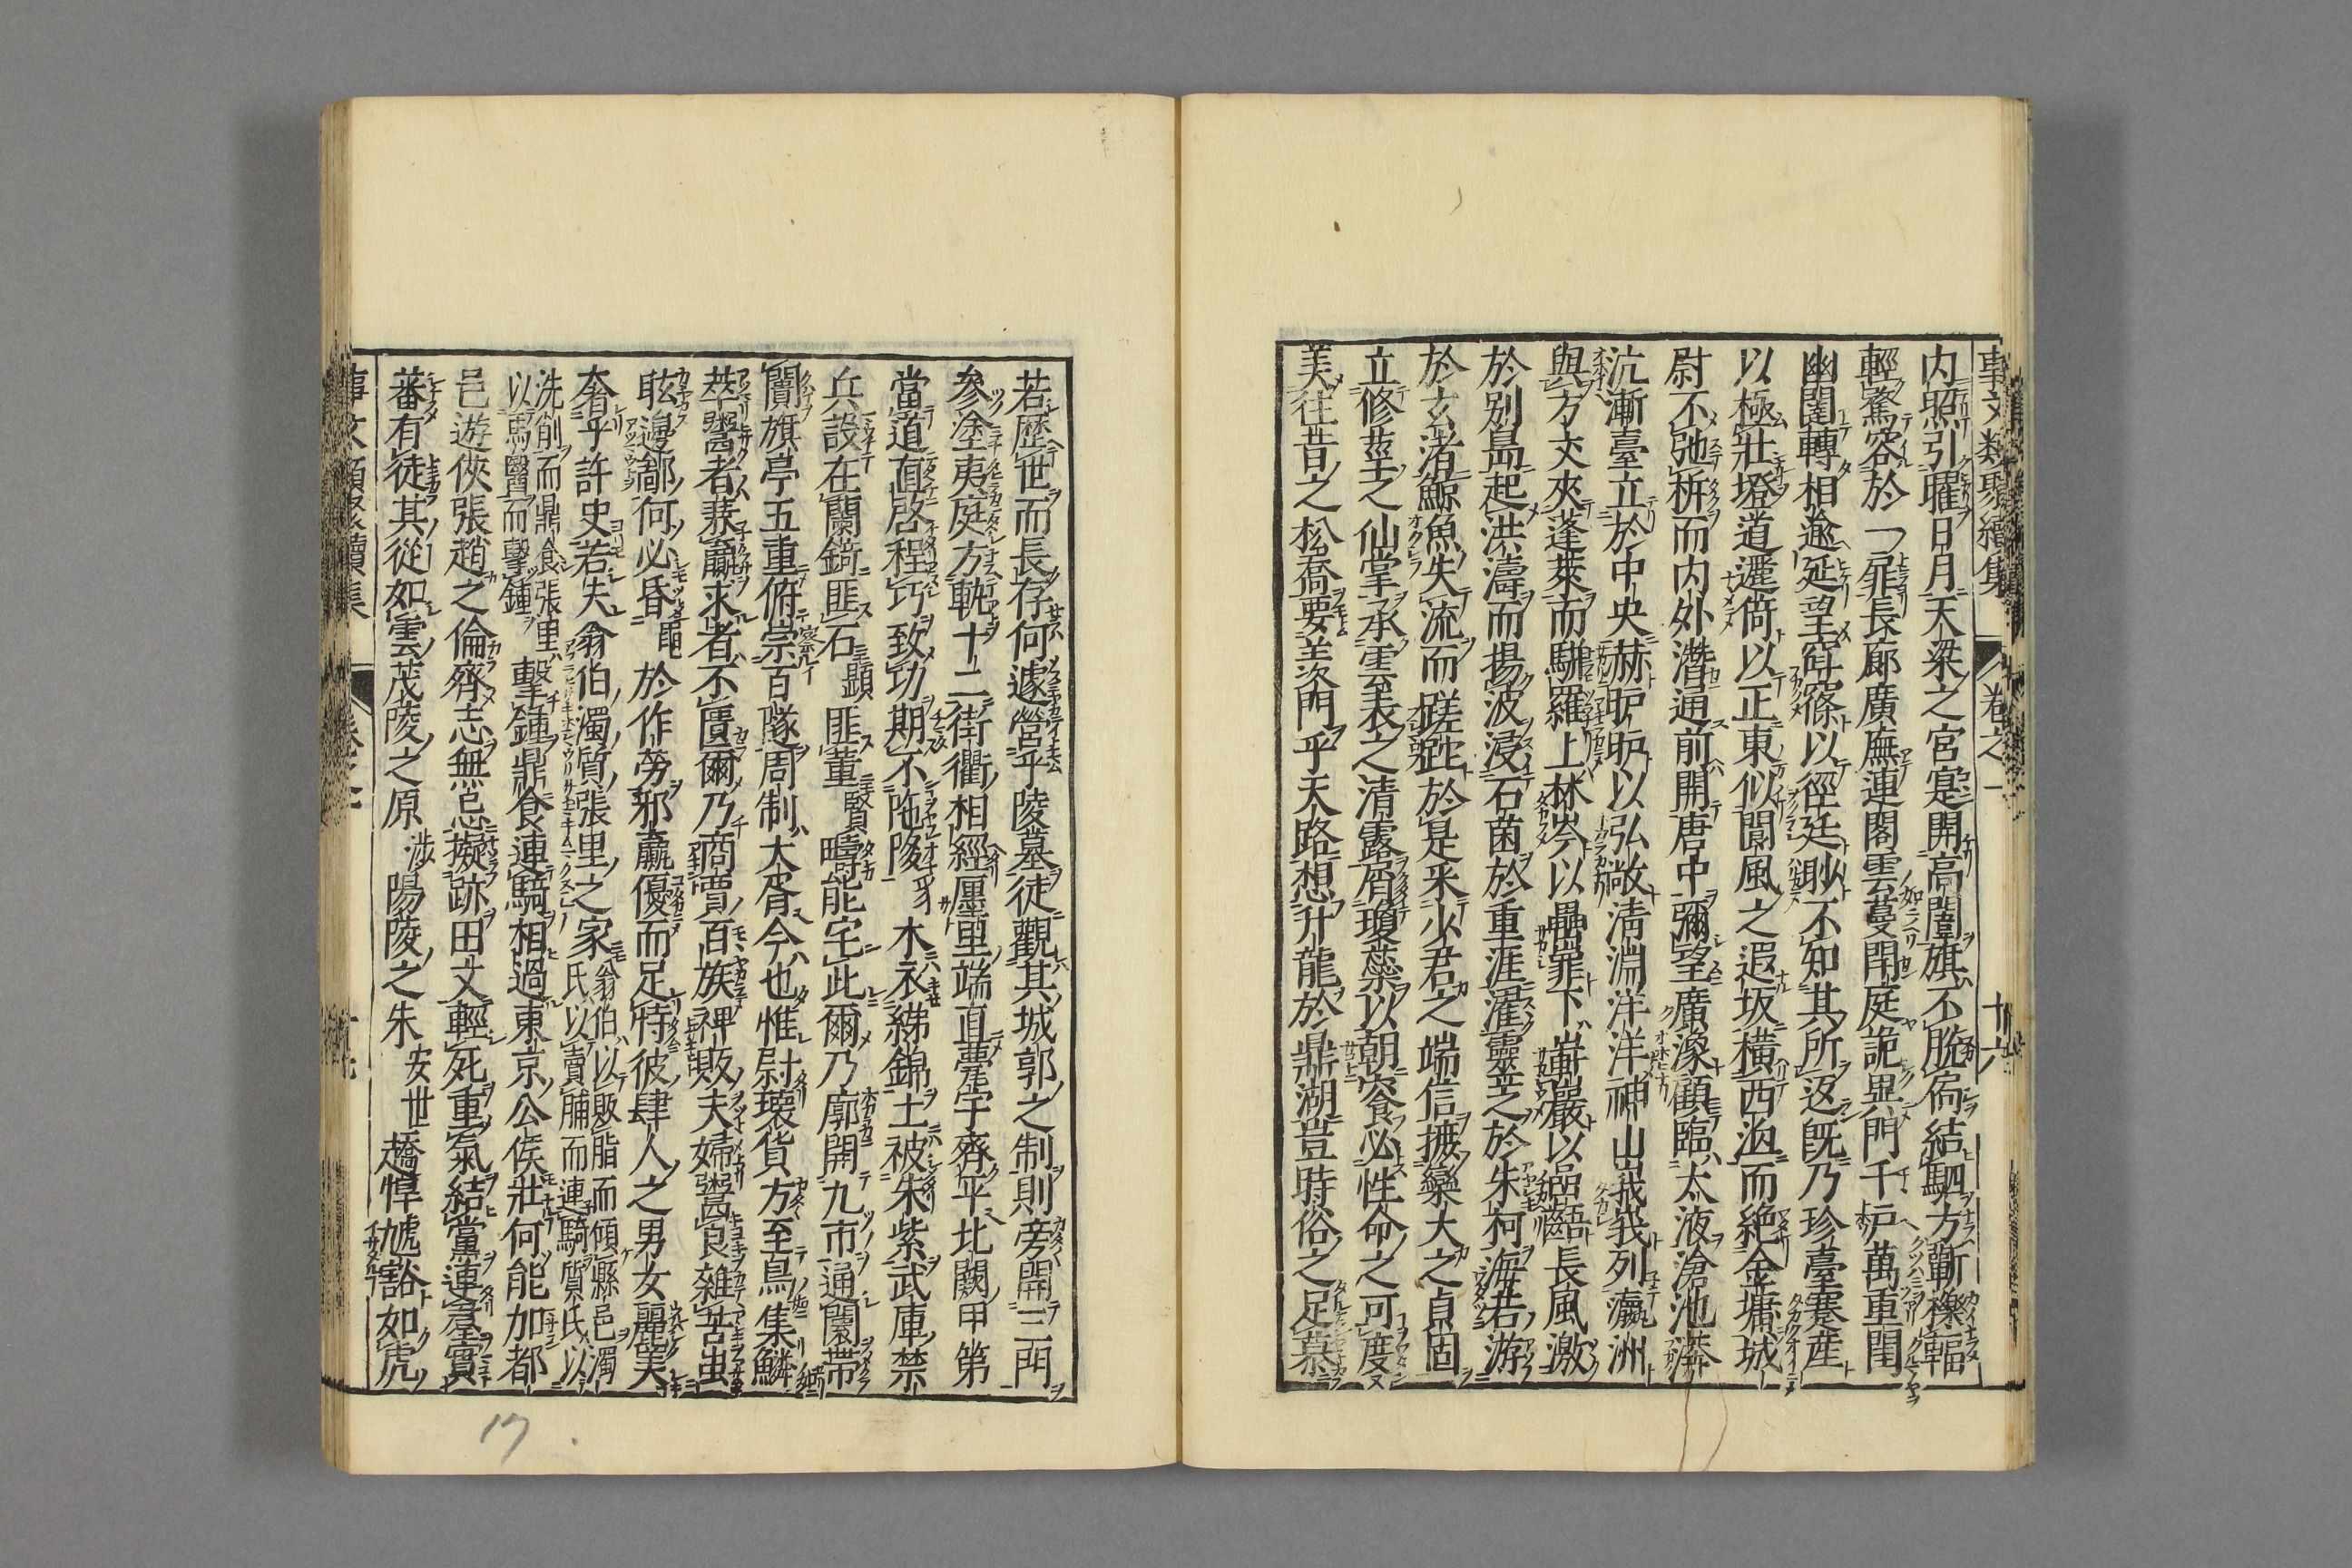 事文類聚續集 卷之一 十六
内照引曜日月天梁之宮寔開高闈旗不脱扃結駟方蘄櫟輻
輕騖容於一扉長廊廣廡連閣雲蔓閈庭詭異門千戸萬重閨
幽闥轉相逾延望窱以徑廷眇不知其所返既乃珍臺蹇産
以極壯墱道邐倚以正東似閬風之遐坂横西洫而絶金墉城
尉不弛柝而内外潛通前開唐中彌望廣潒顧臨太液滄池漭
沆漸臺立於中央赫昈昈以弘敞清淵洋洋神山峩峩列瀛洲
與方丈夾蓬萊而駢羅上林岑以壘嶵下嶄巖以嵒齬長風激
於別島起洪濤而揚波浸石菌於重涯濯靈芝於朱柯海若游
於玄渚鯨魚失流而蹉跎於是采少君之端信摭欒大之貞固
立修莖之仙掌承雲表之清露屑瓊蘂以朝飱必性命之可度
美往昔之松喬要羨門乎天路想升龍於鼎湖豈時俗之足慕
若歴世而長存何遽營乎陵墓徒觀其城郭之制則旁開三門
參塗夷庭方軌十二街衢相經廛里端直甍宇齊平北闕甲第
當道直啓程巧致功期不陁陊 木衣綈錦土被朱紫武庫禁
兵設在蘭錡匪石顯匪董賢疇能宅此爾乃廓開九市通闤帶
闠旗亭五重俯崇百隧周制大胥今也惟尉瓌貨方至鳥集鱗
萃鬻者兼贏求者不匱爾乃商賈百族裨販夫婦鬻良雜苦蚩
眩邊鄙何必昏於作勞邪贏優而足恃彼肆人之男女麗美
奢乎許史若夫翁伯濁質張里之家翁伯以販脂而傾縣邑濁
氏以賣脯而連騎質氏以
洗削而鼎食張里
以馬醫而擊鍾擊鍾鼎食連騎相過東京公侯壯何能加都
邑遊俠張趙之倫齊志無忌擬跡田文輕死重氣結黨連羣寔
蕃有徒其從如雲茂陵之原涉陽陵之朱安世趫悍虓豁如虎
事文類聚續集
17